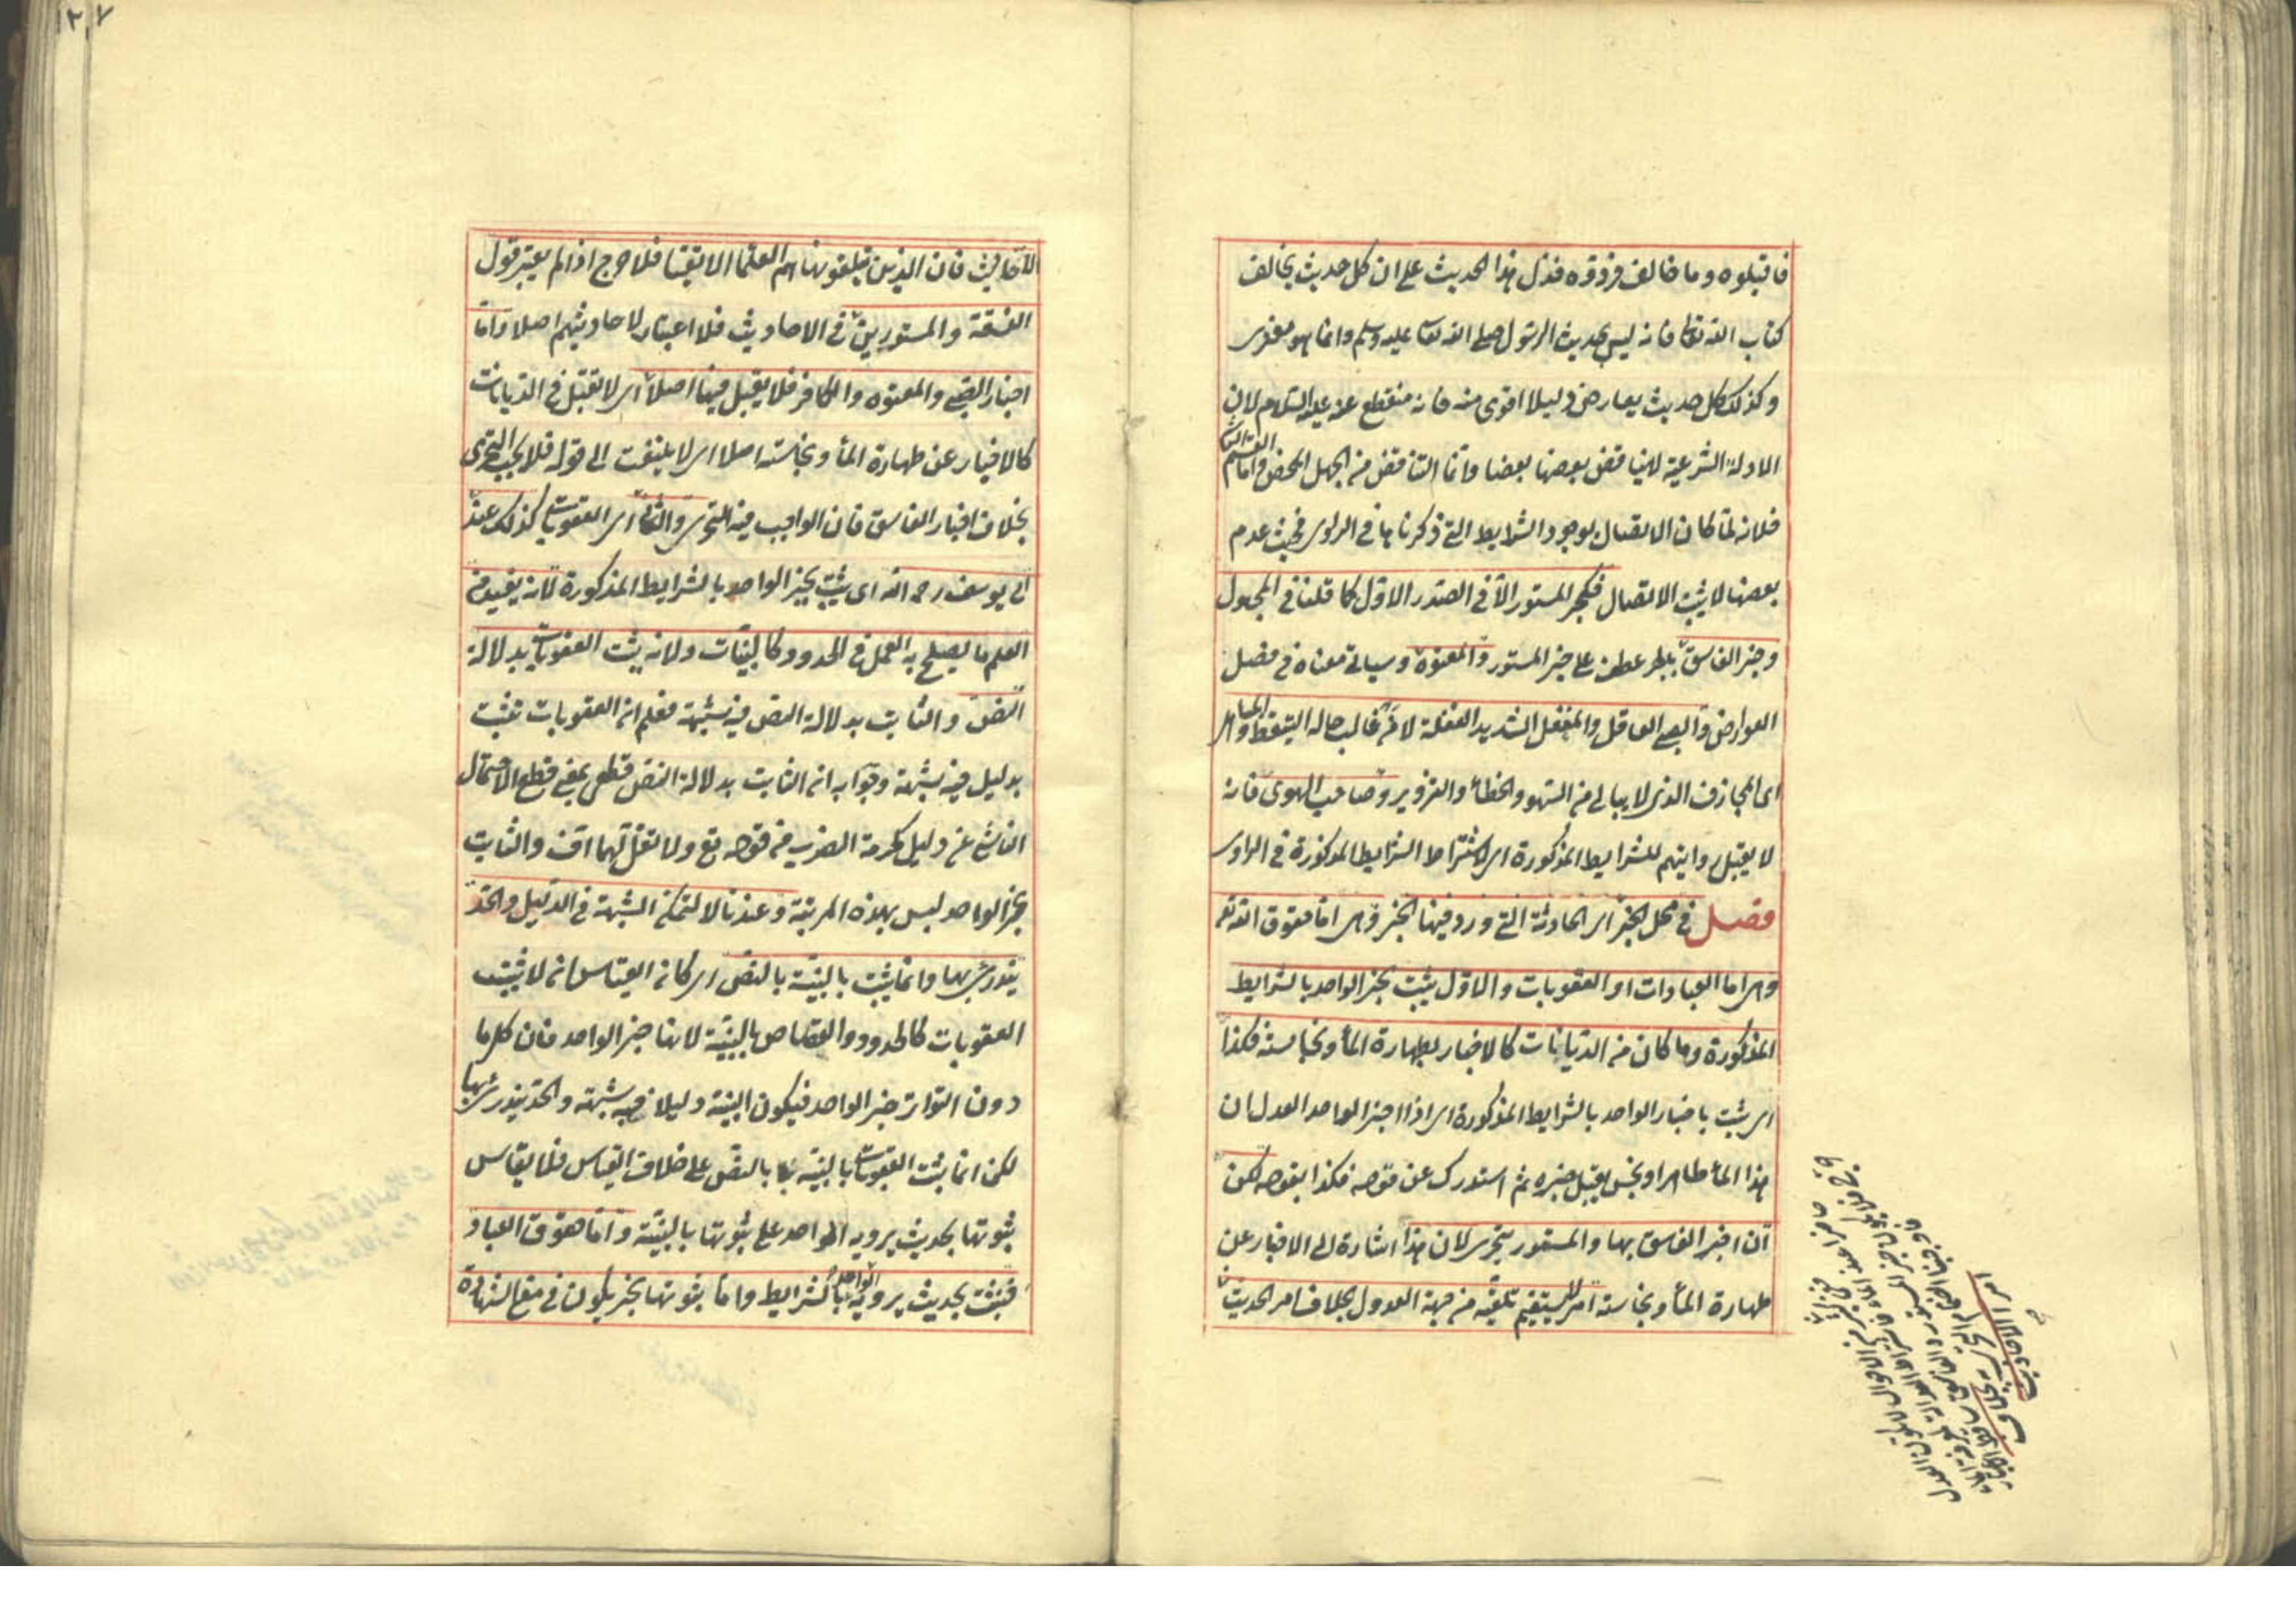 فاقبلوه وما خالف فردوه فدل هذا الحديث على ان كل حديث يخالف
كتاب الله تعالى فانه ليس بحديث الرسول صلى الله تعالى عليه وسلم وانما هو مفترى
وكذلك كل حديث يعارض دليلا اقوى منه فانه منقطع عنه عليه السلام لان
الادلة الشرعية لا يناقض بعضها بعضا وانما التناقض من الجهل المحض واما القسم الثاني
فلانه لما كان الاتصال بوجود الشرايط التي ذكرناها في الراوي فحيث عدم
بعضها لا يثبت الاتصال فكخبر المستور الا في الصدر الاول كما قلنا في المجهول
وخبر الفاسق بالجر عطف على خبر المستور والمعتوه وسيأتي معناه في فصل
العوارض والصبي العاقل والمغفل الشديد الغفلة لا من غالب حاله التيقظ والمساهل
اي المجازف الذي لا يبالي من السهو والخطأ والتزوير وصاحب الهوى فانه
لا يقبل روايتهم للشرايط المذكورة اي لاشتراط الشرايط المذكورة في الراوي
فصل في محل الخبر اي الحادثة التي ورد فيها الخبر وهي اما حقوق الله تع
وهي اما العبادات او العقوبات والاول يثبت بخبر الواحد بالشرايط
المذكورة وما كان من الديانات كالاخبار بطهارة الماء ونجاسته فكذا
اي يثبت باخبار الواحد بالشرايط المذكورة اي اذا اخبر الواحد العدل ان
هذا الماء طاهر او نجس يقبل خبره ثم استدرك عن قوله فكذا بقوله لكن
ان اخبر الفاسق بها والمستور يتحرى لان هذا اشارة الى الاخبار عن
طهارة الماء ونجاسته امر لا يستقيم تلقيه من جهة العدول بخلاف امر الحديث
اي امر الاحاديث
١٢٧
الاحاديث فان الذين يتلقونها هم العلماء الاتقياء فلا حرج اذا لم يعتبر قول
الفسقة والمستورين في الاحاديث فلا اعتبار لاحاديثهم اصلا واما
اخبار الصبي والمعتوه والكافر فلا يقبل فيها اصلا اي لا تقبل في الديانات
كالاخبار عن طهارة الماء ونجاسته اصلا اي لا يلتفت الى قوله فلا يجب التحري
بخلاف اخبار الفاسق فان الواجب فيه التحري والثاني اي العقوبات كذلك عند
ابي يوسف رحمه الله اي يثبت بخبر الواحد بالشرايط المذكورة لانه يفيد من
العلم ما يصلح به العمل في الحدود كالبينات ولانه يثبت العقوبات بدلالة
النص والثابت بدلالة النص فيه شبهة فعلم ان العقوبات تثبت
بدليل فيه شبهة وجوابه ان الثابت بدلالة النص قطعي بمعنى قطع الاحتمال
الناشئ عن دليل كحرمة الضرب من قوله تع ولا تقل لهما اف والثابت
بخبر الواحد ليس بهذه المرتبة وعندنا لا لتمكن الشبهة في الدليل والحد
يندرئ بها وانما يثبت بالبينة بالنص اي كان القياس ان لا يثبت
العقوبات كالحدود والقصاص بالبينة لانها خبر الواحد فان كل ما
دون التواتر خبر الواحد فيكون البينة دليلا فيه شبهة والحد يندرئ بها
لكن انما يثبت العقوبات بالبينة بالنص على خلاف القياس فلا يقاس
ثبوتها بحديث يرويه الواحد على ثبوتها بالبينة واما حقوق العباد
فتثبت بحديث يرويه الواحد بالشرايط واما ثبوتها بخبر يكون في معنى الشهادة